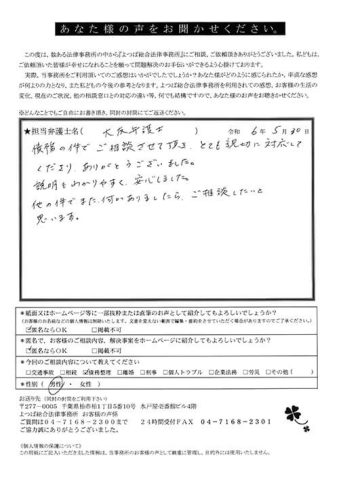 あなた様の声をお聞かせください。
この度は、数ある法律事務所の中から『よつば総合法律事務所』にご相談、ご依頼頂きありがとうございました。私どもは、
ご依頼頂いた皆様が幸せになれることを願って問題解決のお手伝いができるよう心掛けております。
実際、当事務所をご利用頂いてのご感想はいかがでしたでしょうか？あなた様がどのように感じられたか、率直な感想
が何よりの力となり、また私どもの今後の参考となります。よつば総合法律事務所を利用されての感想、お客様の生活の
変化、現在のご状況、他の相談窓口との対応の違い等、何でも結構ですので、あなた様のお声をお聞かせください。
※どんなことでもご自由にお書き頂き、同封の封筒にてご返送ください。
★担当弁護士名（ 大友弁護士 ） 令和 6年 5月 30日
債務の件でご相談させて頂き、とても親切に対応して
くださり、ありがとうございました。
説明もわかりやすく、安心しました。
他の件でまた何かありましたら、ご相談したいと
思います。
＊紙面又はホームページ等に一部抜粋または直筆のお声として紹介してもよろしいでしょうか？
（お客様のお名前などの個人情報は削除いたします。文意を変えない範囲で編集・要約をさせていただく場合がありますのでご了承ください。）
☑匿名ならOK □掲載不可
＊匿名で、お客様のご相談内容、解決事案をホームページに紹介してもよろしいでしょうか？
☑匿名ならOK □掲載不可
＊今回のご相談内容について教えてください
□交通事故 □相続 ☑債務整理 □離婚 □刑事 □個人トラブル □企業法務 □労災 □その他（ ）
＊性別（ 男性 ・ 女性 ）
お送り先（同封の封筒をご利用下さい）
〒277-0005 千葉県柏市柏1丁目5番10号 水戸屋壱番館ビル4階
よつば総合法律事務所 お客様の声係
ご質問は04-7168-2300まで 24時間受付FAX 04-7168-2301
ご協力誠にありがとうございました。
《個人情報の保護について》
この用紙にご記入いただきました情報は、当事務所のお客様の声として厳重に管理し、目的外には使用いたしません。